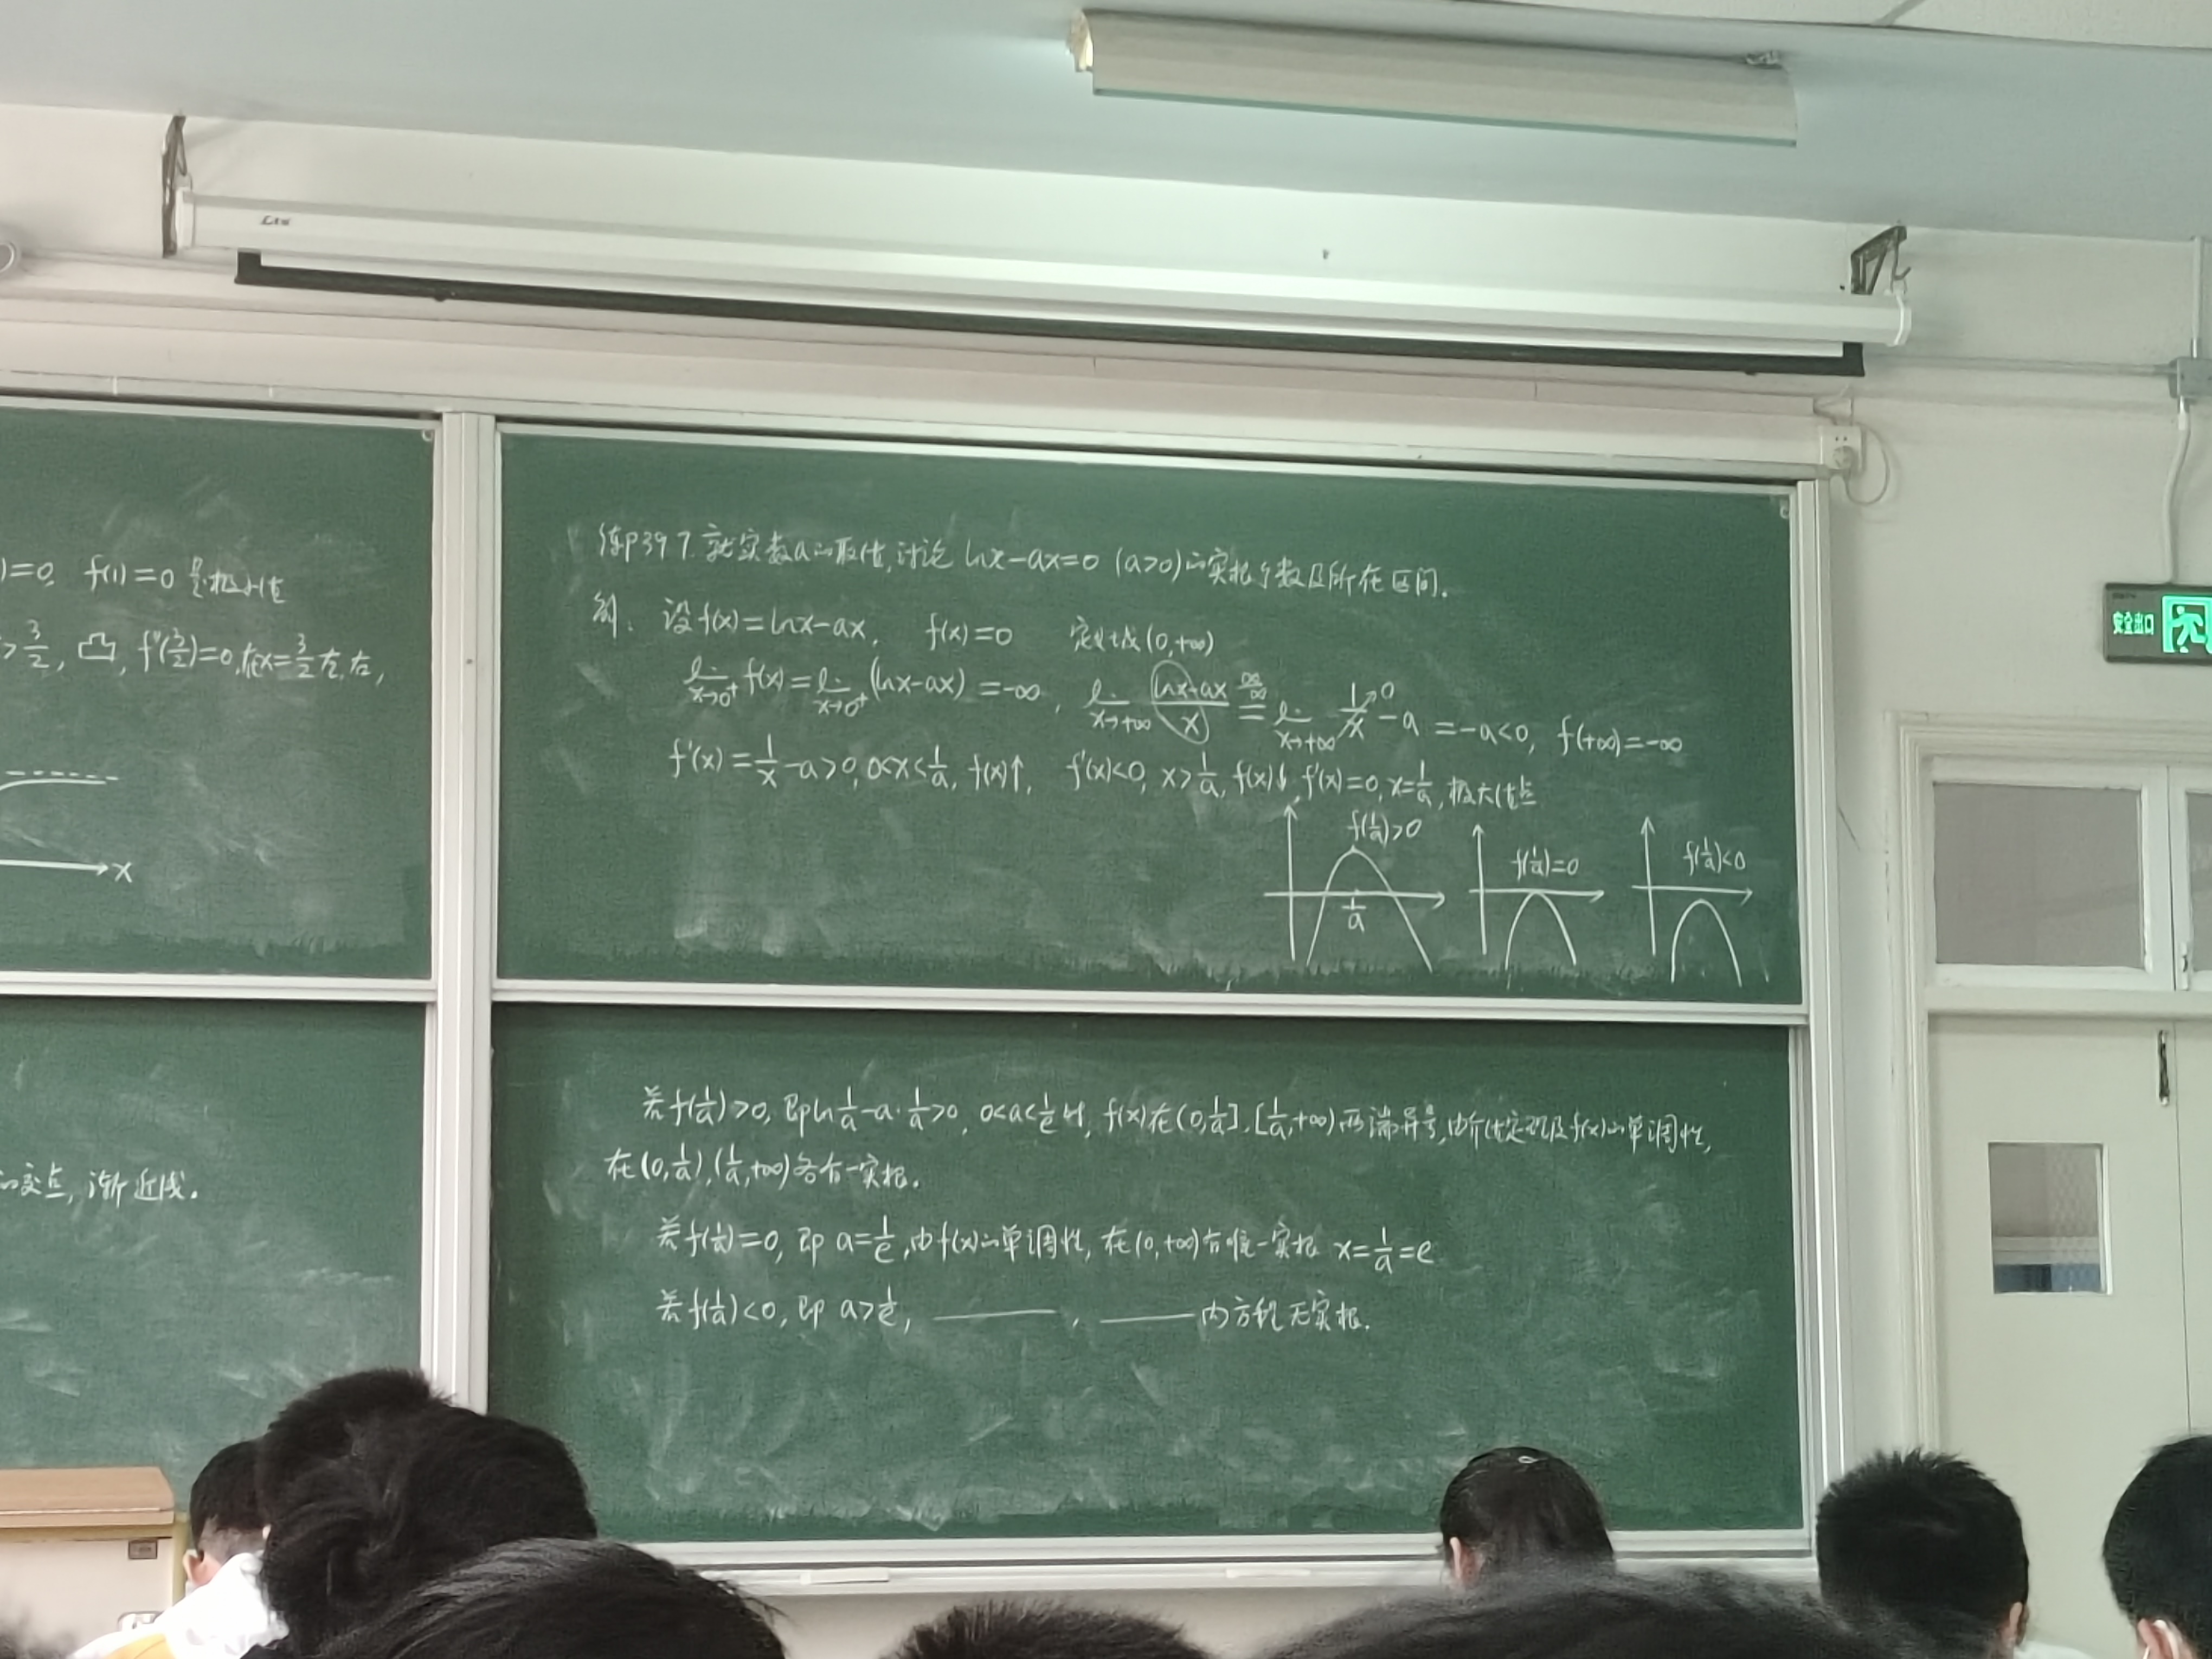 )=0, f(1)=0 是极小值
>3/2, 凸, f''(3/2)=0, 在x=3/2左,右,
x
的交点, 渐近线.
练P39 7. 就实数a的取值,讨论 lnx-ax=0 (a>0)的实根个数及所在区间.
解: 设f(x)=lnx-ax, f(x)=0 定义域(0,+∞)
lim x→0⁺ f(x)=lim x→0⁺ (lnx-ax)=-∞, lim x→+∞ (lnx-ax)/x =(∞/∞) lim x→+∞ 1/x→0 -a =-a<0, f(+∞)=-∞
f'(x)=1/x-a>0, 0<x<1/a, f(x)↑, f'(x)<0, x>1/a, f(x)↓, f'(x)=0, x=1/a, 极大值点
f(1/a)>0 f(1/a)=0 f(1/a)<0
1/a
若f(1/a)>0, 即ln1/a-a·1/a>0, 0<a<1/e时, f(x)在(0,1/a], [1/a,+∞)两端异号,由介值定理及f(x)的单调性,
在(0,1/a),(1/a,+∞)各有一实根.
若f(1/a)=0, 即 a=1/e,由f(x)的单调性, 在(0,+∞)有唯一实根 x=1/a=e
若f(1/a)<0, 即 a>1/e, ——, ——内方程无实根.
安全出口